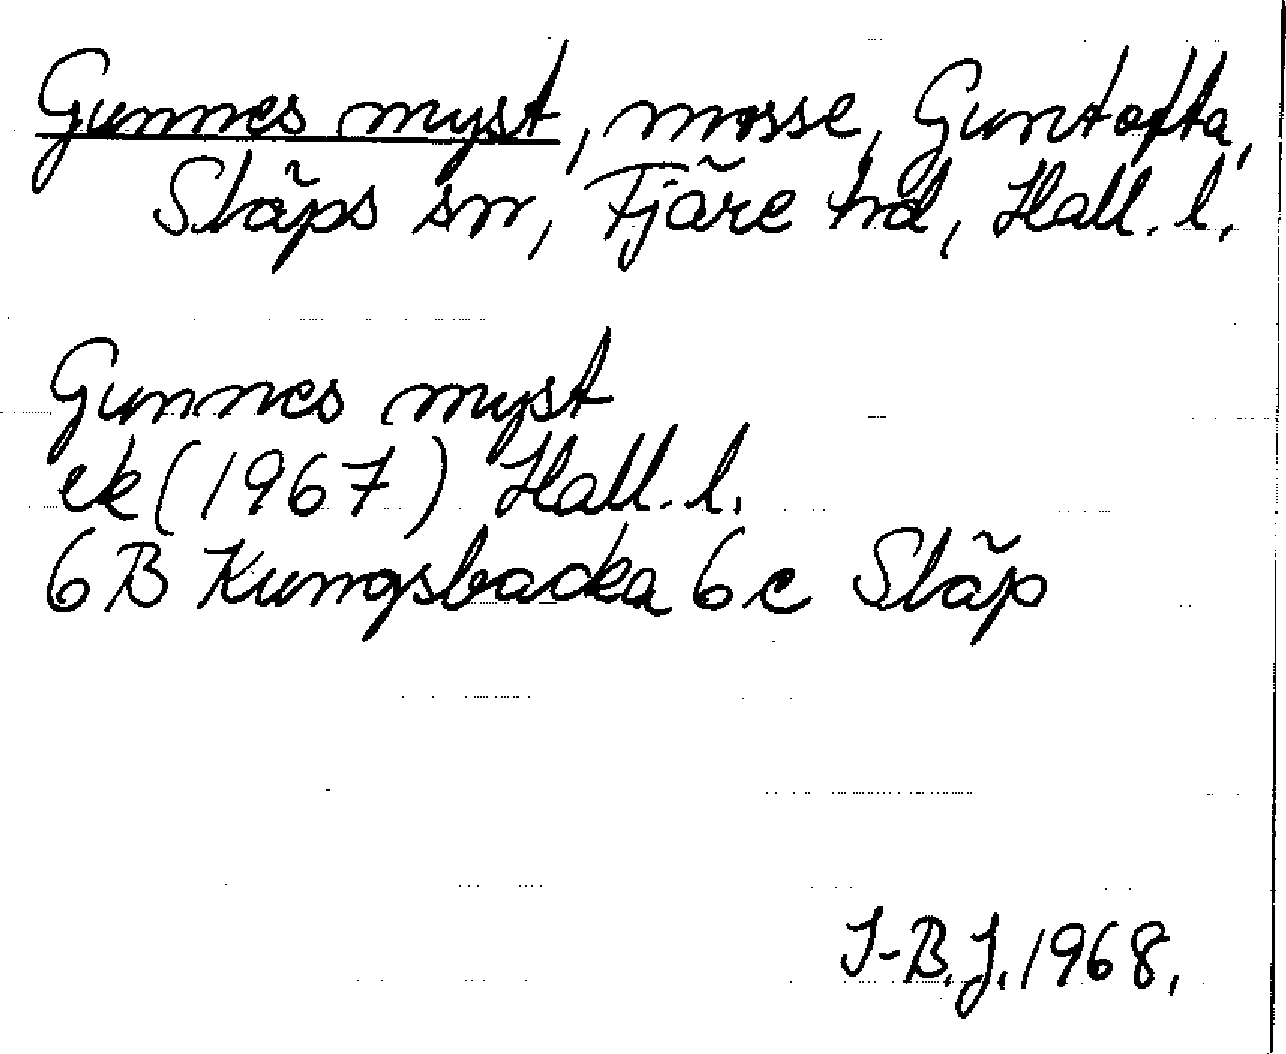 Gunnes myst, mosse, Guntofta,
Släps sn, Fjäre hd, Hall. l.
Gunnes myst
ek (1967) Hall. l.
6 B Kungsbacka 6 c Släp
I-B.J. 1968.